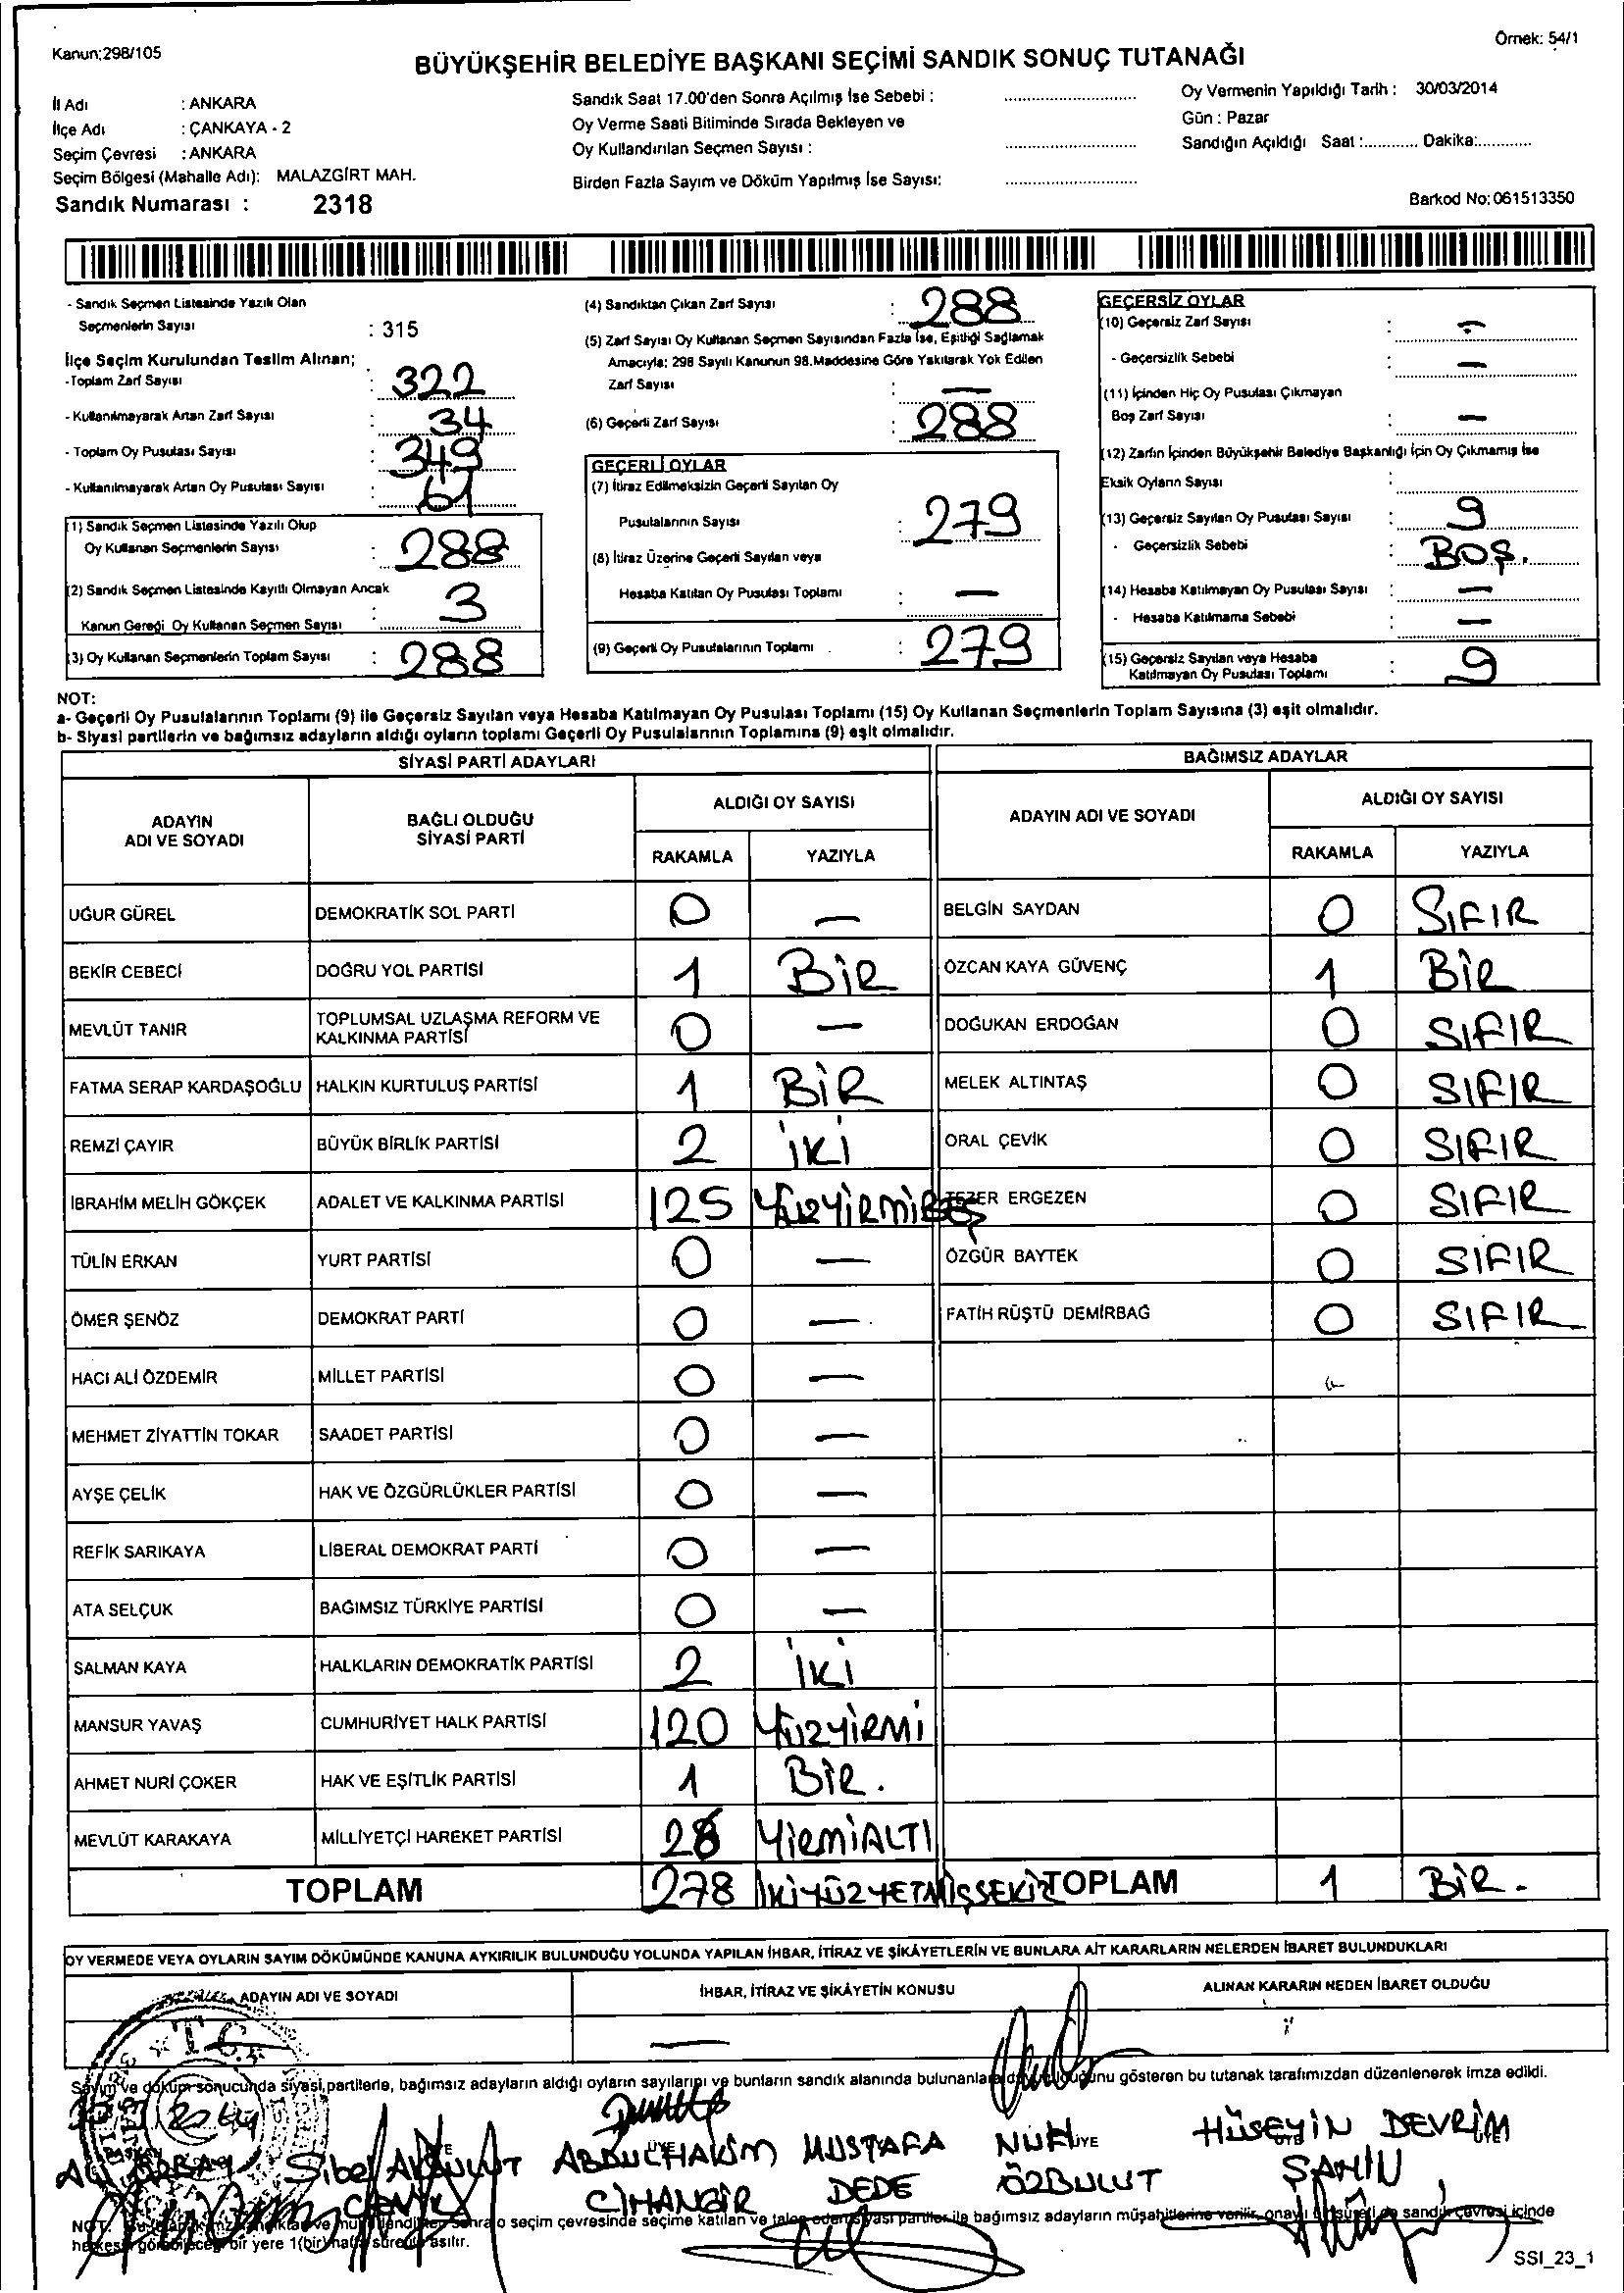 Kanun:298/105
Örnek: 54/1
BÜYÜKŞEHİR BELEDİYE BAŞKANI SEÇİMİ SANDIK SONUÇ TUTANAĞI
İl Adı : ANKARA
İlçe Adı : ÇANKAYA - 2
Seçim Çevresi : ANKARA
Seçim Bölgesi (Mahalle Adı): MALAZGİRT MAH.
Sandık Numarası : 2318
Sandık Saat 17.00'den Sonra Açılmış İse Sebebi :
Oy Verme Saati Bitiminde Sırada Bekleyen ve
Oy Kullandırılan Seçmen Sayısı :
Birden Fazla Sayım ve Döküm Yapılmış İse Sayısı:
Oy Vermenin Yapıldığı Tarih : 30/03/2014
Gün : Pazar
Sandığın Açıldığı Saat :............ Dakika:............
Barkod No: 061513350
- Sandık Seçmen Listesinde Yazılı Olan
Seçmenlerin Sayısı : 315
İlçe Seçim Kurulundan Teslim Alınan;
-Toplam Zarf Sayısı : 322
- Kullanılmayarak Artan Zarf Sayısı : 34
- Toplam Oy Pusulası Sayısı : 349
- Kullanılmayarak Artan Oy Pusulası Sayısı : 61
(1) Sandık Seçmen Listesinde Yazılı Olup
Oy Kullanan Seçmenlerin Sayısı : 288
(2) Sandık Seçmen Listesinde Kayıtlı Olmayan Ancak
Kanun Gereği Oy Kullanan Seçmen Sayısı : 3
(3) Oy Kullanan Seçmenlerin Toplam Sayısı : 288
(4) Sandıktan Çıkan Zarf Sayısı : 288
(5) Zarf Sayısı Oy Kullanan Seçmen Sayısından Fazla İse, Eşitliği Sağlamak
Amacıyla; 298 Sayılı Kanunun 98.Maddesine Göre Yakılarak Yok Edilen
Zarf Sayısı : —
(6) Geçerli Zarf Sayısı : 288
GEÇERLİ OYLAR
(7) İtiraz Edilmeksizin Geçerli Sayılan Oy
Pusulalarının Sayısı : 279
(8) İtiraz Üzerine Geçerli Sayılan veya
Hesaba Katılan Oy Pusulası Toplamı : —
(9) Geçerli Oy Pusulalarının Toplamı : 279
GEÇERSİZ OYLAR
(10) Geçersiz Zarf Sayısı : —
- Geçersizlik Sebebi : —
(11) İçinden Hiç Oy Pusulası Çıkmayan
Boş Zarf Sayısı : —
(12) Zarfın İçinden Büyükşehir Belediye Başkanlığı İçin Oy Çıkmamış İse
Eksik Oyların Sayısı :
(13) Geçersiz Sayılan Oy Pusulası Sayısı : 9
- Geçersizlik Sebebi : BOŞ.
(14) Hesaba Katılmayan Oy Pusulası Sayısı : —
- Hesaba Katılmama Sebebi : —
(15) Geçersiz Sayılan veya Hesaba
Katılmayan Oy Pusulası Toplamı : 9
NOT:
a- Geçerli Oy Pusulalarının Toplamı (9) ile Geçersiz Sayılan veya Hesaba Katılmayan Oy Pusulası Toplamı (15) Oy Kullanan Seçmenlerin Toplam Sayısına (3) eşit olmalıdır.
b- Siyasi partilerin ve bağımsız adayların aldığı oyların toplamı Geçerli Oy Pusulalarının Toplamına (9) eşit olmalıdır.
SİYASİ PARTİ ADAYLARI
ADAYIN ADI VE SOYADI BAĞLI OLDUĞU SİYASİ PARTİ ALDIĞI OY SAYISI
RAKAMLA YAZIYLA
UĞUR GÜREL DEMOKRATİK SOL PARTİ 0 —
BEKİR CEBECİ DOĞRU YOL PARTİSİ 1 BİR
MEVLÜT TANIR TOPLUMSAL UZLAŞMA REFORM VE KALKINMA PARTİSİ 0 —
FATMA SERAP KARDAŞOĞLU HALKIN KURTULUŞ PARTİSİ 1 BİR
REMZİ ÇAYIR BÜYÜK BİRLİK PARTİSİ 2 İKİ
İBRAHİM MELİH GÖKÇEK ADALET VE KALKINMA PARTİSİ 125 YÜZYİRMİBEŞ
TÜLİN ERKAN YURT PARTİSİ 0 —
ÖMER ŞENÖZ DEMOKRAT PARTİ 0 —
HACI ALİ ÖZDEMİR MİLLET PARTİSİ 0 —
MEHMET ZİYATTİN TOKAR SAADET PARTİSİ 0 —
AYŞE ÇELİK HAK VE ÖZGÜRLÜKLER PARTİSİ 0 —
REFİK SARIKAYA LİBERAL DEMOKRAT PARTİ 0 —
ATA SELÇUK BAĞIMSIZ TÜRKİYE PARTİSİ 0 —
SALMAN KAYA HALKLARIN DEMOKRATİK PARTİSİ 2 İKİ
MANSUR YAVAŞ CUMHURİYET HALK PARTİSİ 120 YÜZYİRMİ
AHMET NURİ ÇOKER HAK VE EŞİTLİK PARTİSİ 1 BİR.
MEVLÜT KARAKAYA MİLLİYETÇİ HAREKET PARTİSİ 26 YİRMİALTI
TOPLAM 278 İKİYÜZYETMİŞSEKİZ
BAĞIMSIZ ADAYLAR
ADAYIN ADI VE SOYADI ALDIĞI OY SAYISI
RAKAMLA YAZIYLA
BELGİN SAYDAN 0 SIFIR
ÖZCAN KAYA GÜVENÇ 1 BİR
DOĞUKAN ERDOĞAN 0 SIFIR
MELEK ALTINTAŞ 0 SIFIR
ORAL ÇEVİK 0 SIFIR
TEZER ERGEZEN 0 SIFIR
ÖZGÜR BAYTEK 0 SIFIR
FATİH RÜŞTÜ DEMİRBAĞ 0 SIFIR
TOPLAM 1 BİR.
OY VERMEDE VEYA OYLARIN SAYIM DÖKÜMÜNDE KANUNA AYKIRILIK BULUNDUĞU YOLUNDA YAPILAN İHBAR, İTİRAZ VE ŞİKÂYETLERİN VE BUNLARA AİT KARARLARIN NELERDEN İBARET BULUNDUKLARI
ADAYIN ADI VE SOYADI İHBAR, İTİRAZ VE ŞİKÂYETİN KONUSU ALINAN KARARIN NEDEN İBARET OLDUĞU
T.C.
Sayım ve döküm sonucunda siyasi partilerle, bağımsız adayların aldığı oyların sayılarını ve bunların sandık alanında bulunanlara duyurulduğunu gösteren bu tutanak tarafımızdan düzenlenerek imza edildi.
BAŞKAN ÜYE ÜYE ÜYE ÜYE
Sibel ABDULHAKİM MUSTAFA NUH HÜSEYİN DEVRİM
CİHANGİR DEDE ÖZBULUT ŞAHİN
o seçim çevresinde seçime katılan ve talep eden siyasi partiler ile bağımsız adayların müşahitlerine verilir, onaylı bir sureti de sandık çevresi içinde
bir yere 1(bir) hafta süreyle asılır.
SSI_23_1